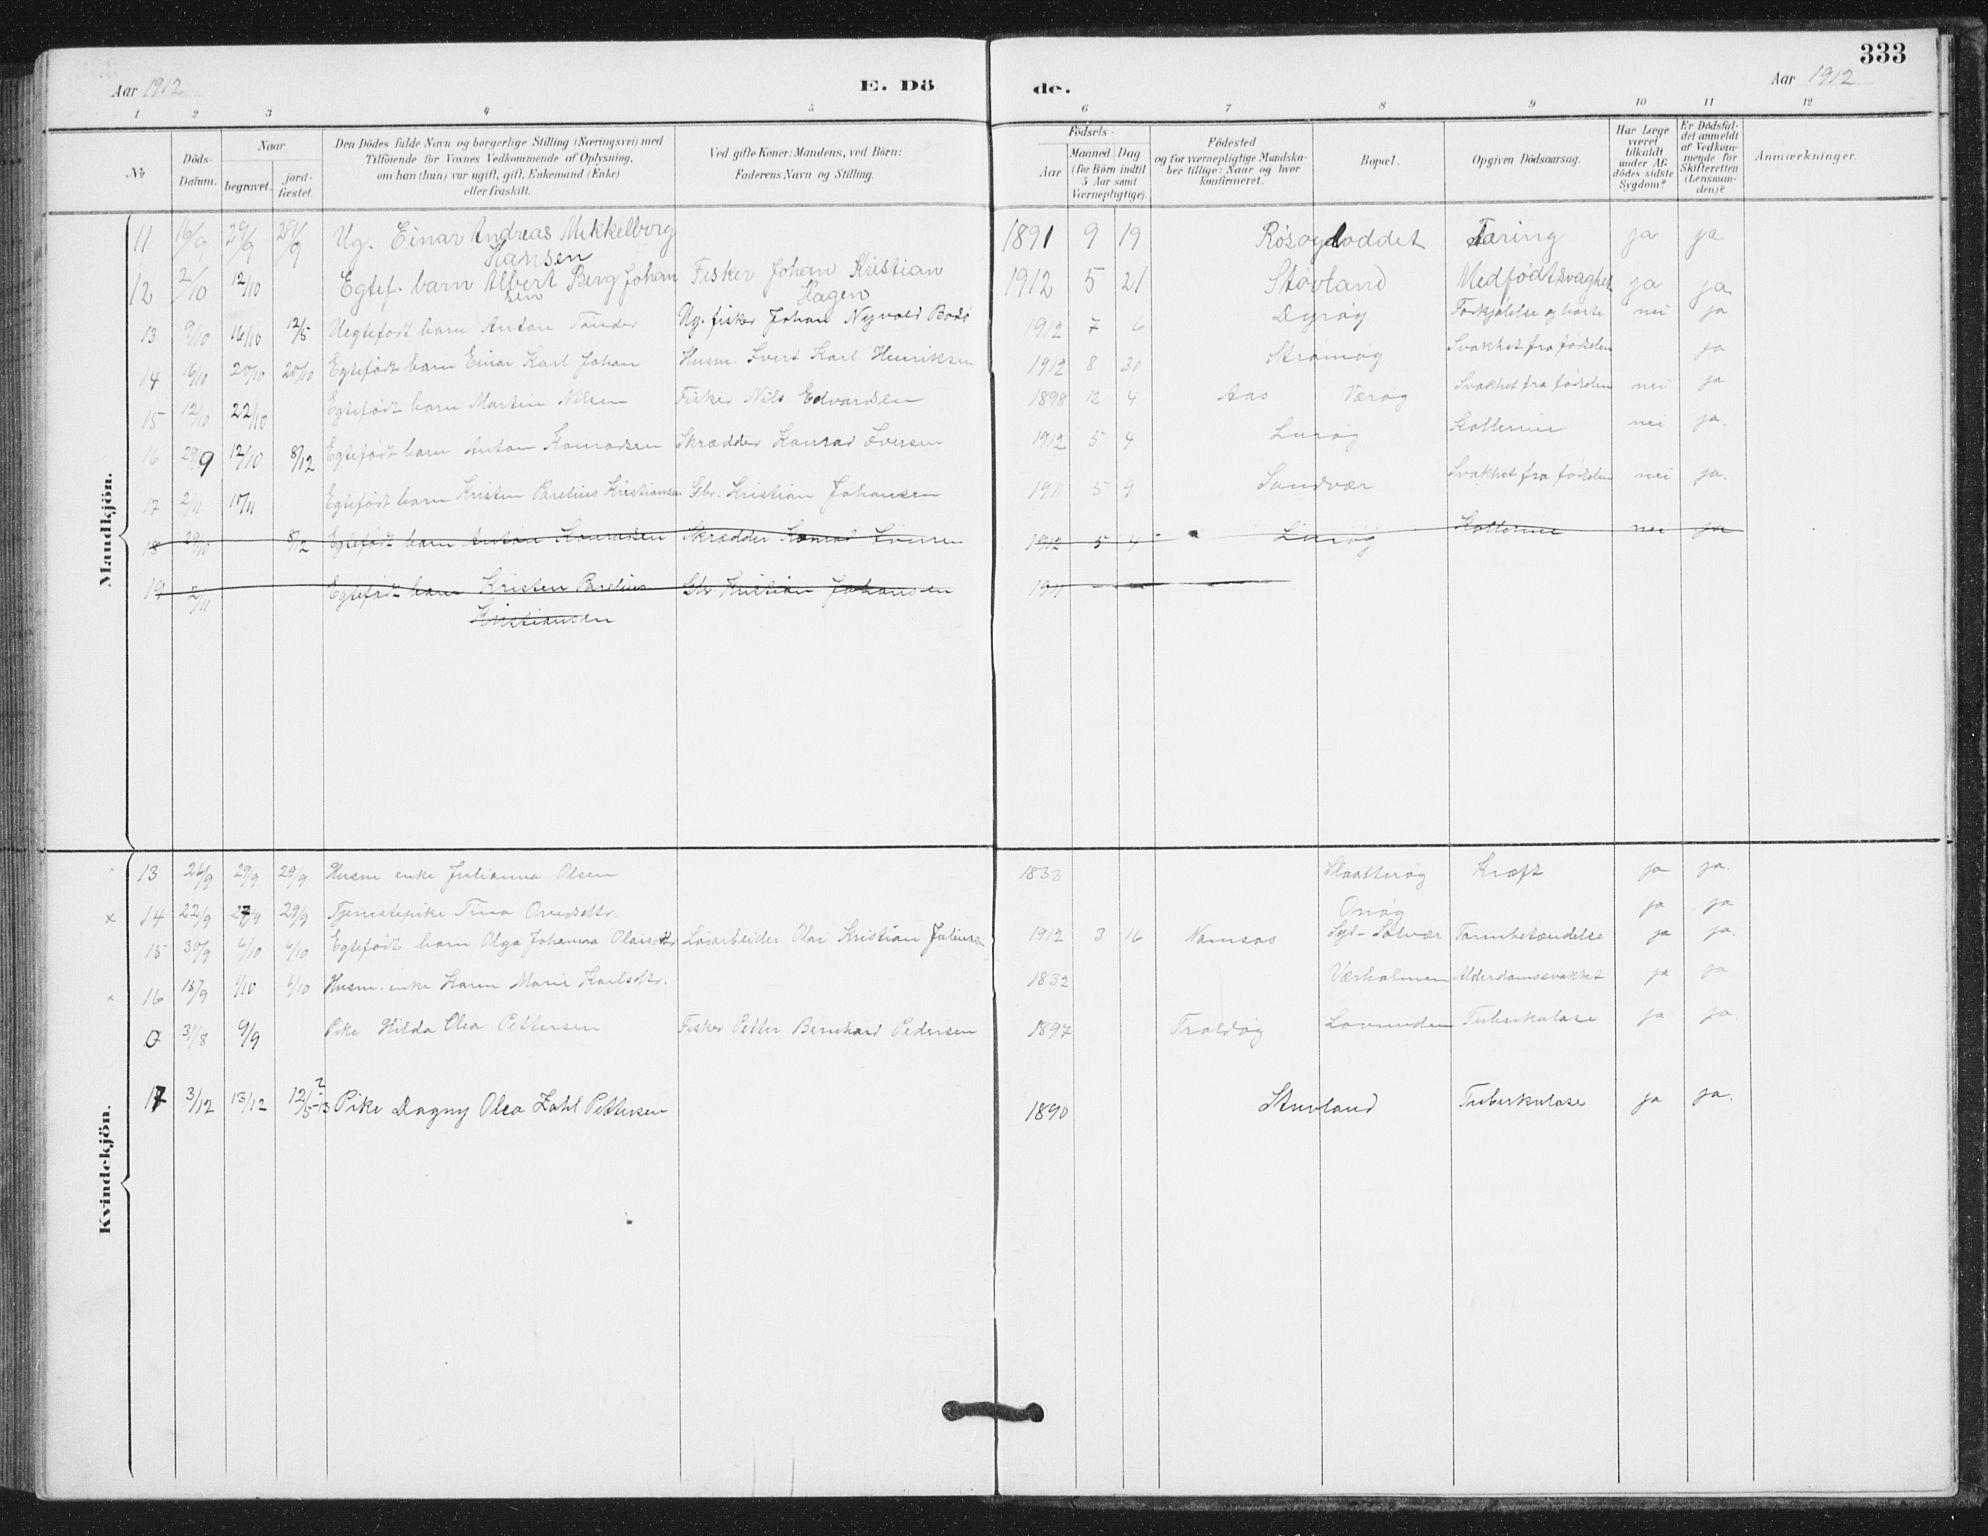 333
Aar 1912 E. Dö de. Aar 1912
1 2 3 4 5 6 7 8 9 10 11 12
№
Döds-
Datum.
Naar
begravet.
jord-
fæstet.
Den Dödes fulde Navn og borgerlige Stilling (Næringsvei) med
Tilföiende for Voxnes Vedkommende af Oplysning,
om han (hun) var ugift, gift, Enkemand (Enke)
eller fraskilt.
Ved gifte Koner: Mandens, ved Börn:
Faderens Navn og Stilling.
Födsels-
Aar
Maaned. Dag
(for Börn indtil
5 Aar samt
Værnepligtige).
Födested
og for værnepligtige Mandska-
ber tillige: Naar og hvor
konfirmeret.
Bopæl.
Opgiven Dödsaarsag.
Har Læge
været
tilkaldt
under Af-
dödes sidste
Sygdom?
Er Dödsfal-
det anmeldt
af Vedkom-
mende for
Skifteretten
(Lensman-
den)?
Anmærkninger.
Mandkjön.
11 16/9 29/9 29/9 Ug. Einar Andreas Mikkelborg 1891 9 19 Røsøyloddet Tæring ja ja
Hansen
12 2/10 12/10 Egtef. barn Albert Berg Johan Fisker Johan Kristian 1912 5 21 Støvland Medfødtsvaghet ja ja
sen Hagen
13 9/10 16/10 12/5 Uegtefødt barn Anton Tønder Ug. fisker Johan Nyvold Bodø 1912 7 6 Dyrøy Forkjølelse og hoste nei ja
14 16/10 20/10 20/10 Egtefødt barn Einar Karl Johan Husm. Evert Karl Henriksen 1912 8 30 Strømøy Svakhet fra fødselen ja
15 12/10 22/10 Egtefødt barn Martin Nilsen Fisker Nils Edvardsen 1898 12 4 Aas Værøy Svakhet fra fødselen nei ja
16 29/9 12/10 8/12 Egtefødt barn Anton Konradsen Skrædder Konrad Iversen 1912 5 4 Lurøy Kollerine nei ja.
17 2/11 17/11 Egtefødt barn Kristen Parelius Kristiansen Gbr. Kristian Johansen 1911 5 9 Sandvær Svakhet fra fødselen nei ja.
18 29/10 8/12 Egtefødt barn Anton Konradsen Skrædder Konrad Iversen 1912 5 4 Lurøy Kollerine nei ja
19 2/11 Egtefødt barn Kristen Parelius Gbr. Kristian Johansen 1911
Kristiansen
Kvindekjön.
13 26/9 29/9 29/9 Husm. enke Julianna Olsen 1833 Slaatterøy Kræft ja ja.
x 14 22/9 27/9 29/9 Tjenestepike Tina Ovedsdtr. Onøy ja ja
15 30/9 6/10 6/10 Egtefødt barn Olga Johanna Olaisdtr Løsarbeider Olai Kristian Juliussen 1912 3 16 Namsos Syd-Solvær Tarmbetændelse ja ja.
16 15/9 6/10 6/10 Husm. enke Karen Marie Karlsdtr. 1832 Værholmen Alderdomssvakhet ja ja
0 31/8 9/9 Pike Hilda Olea Pettersen Fisker Petter Bernhard Pedersen 1897 Traldøy Lovunden Tuberkulose ja ja.
17 3/12 13/12 12/5-13 Pike Dagny Olea Zahl Pettersen 1890 Stuvland Tuberkulose ja ja.